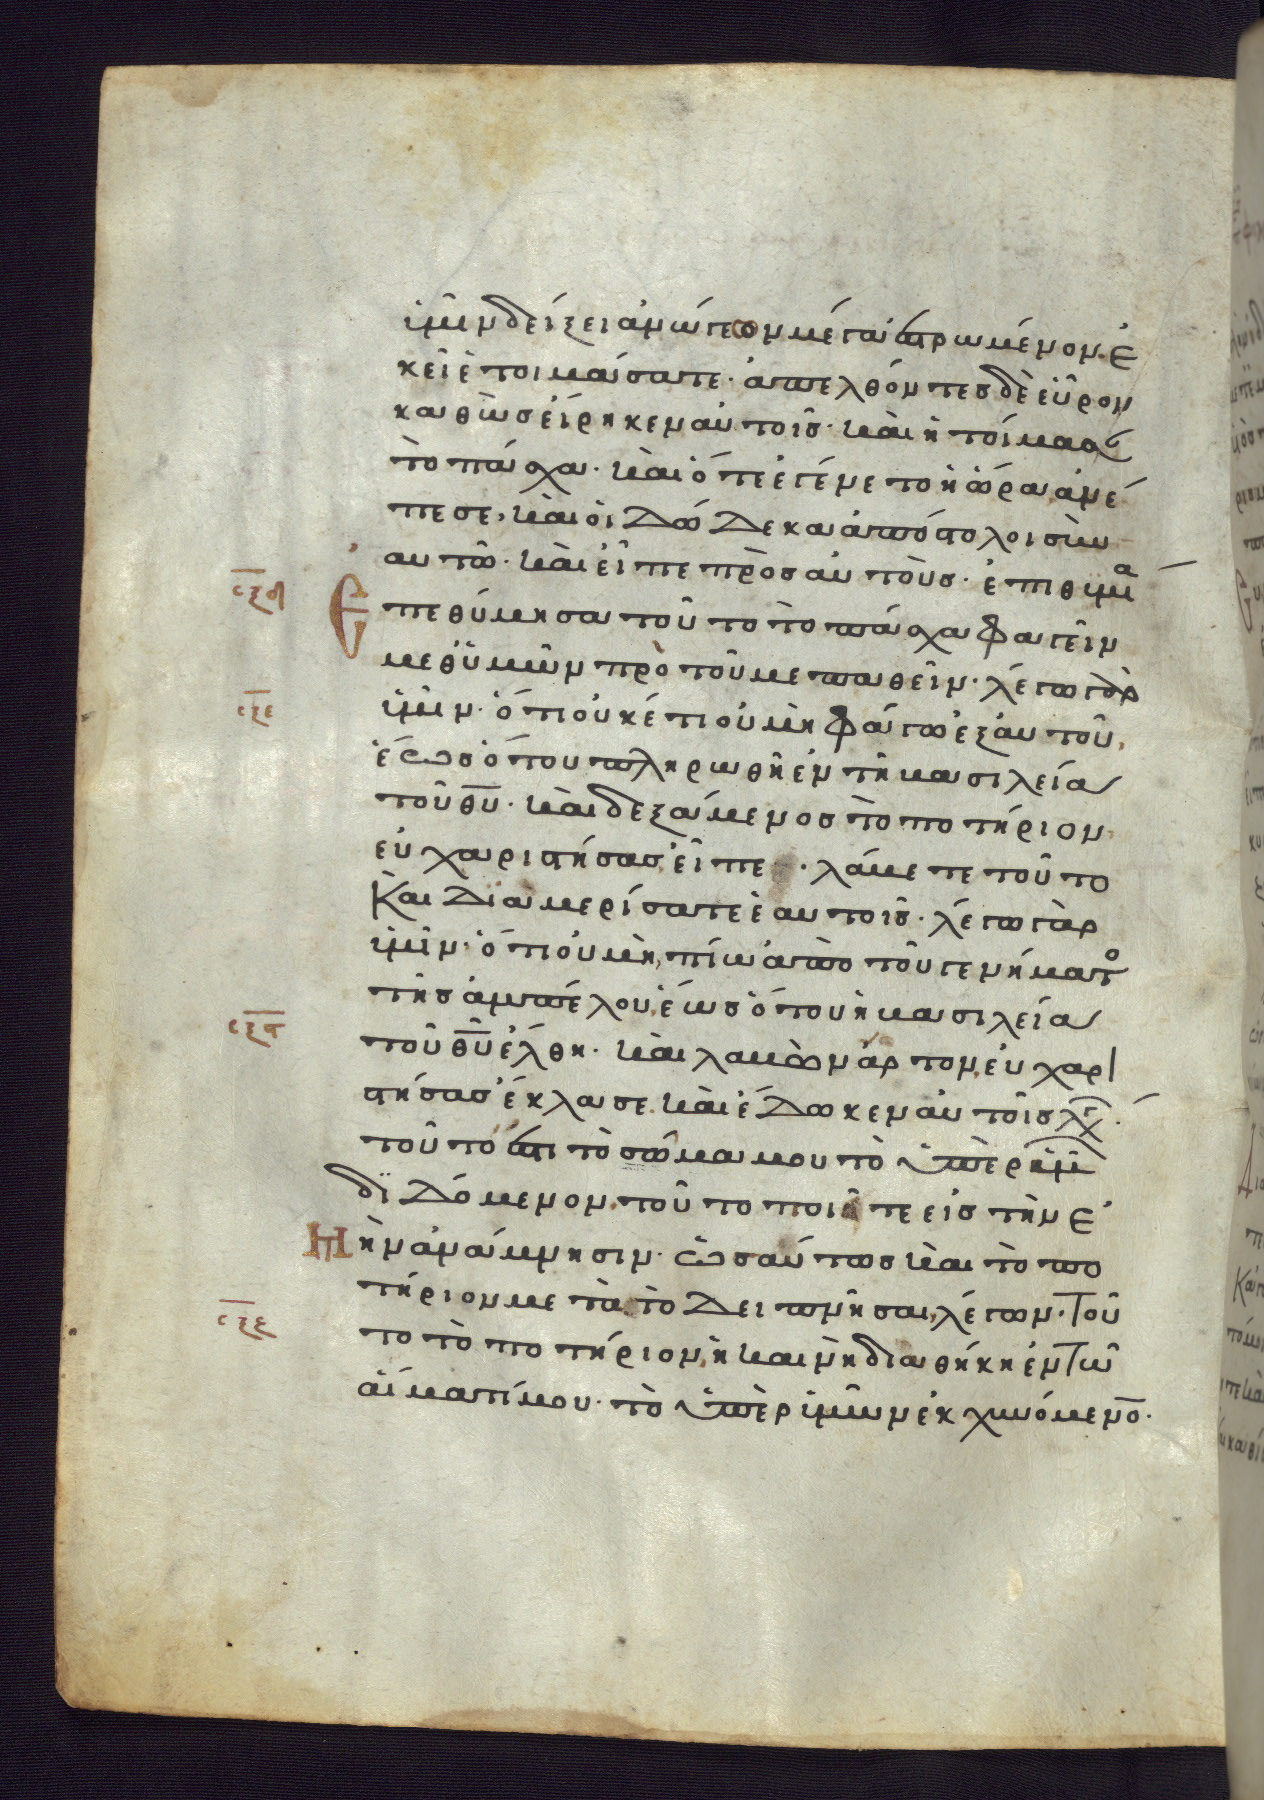 ὑμῖν δείξει ἀνώγεων μέγα ἐστρωμένον. ἐ
κεῖ ἑτοιμάσατε. ἀπελθόντες δὲ εὗρον
καθὼς εἴρηκεν αὐτοῖς. καὶ ἡτοίμασαν
τὸ πάσχα. καὶ ὅτε ἐγένετο ἡ ὥρα, ἀνέ
πεσε, καὶ οἱ δώδεκα ἀπόστολοι σὺν
αὐτῶ. καὶ εἶπε πρὸς αὐτούς. ἐπιθυμία
σξδ
Ἐπεθύμησα τοῦτο τὸ πάσχα φαγεῖν
μεθ' ὑμῶν πρὸ τοῦ με παθεῖν. λέγω γὰρ
σξε
ὑμῖν. ὅτι οὐκέτι οὐ μὴ φάγω ἐξ αὐτοῦ,
ἕως ὅτου πληρωθῆ ἐν τῆ βασιλεία
τοῦ θυ. καὶ δεξάμενος τὸ ποτήριον
εὐχαριστήσας εἶπε. λάβετε τοῦτο
καὶ διαμερίσατε ἑαυτοῖς. λέγω γὰρ
ὑμῖν. ὅτι οὐ μὴ πίω ἀπὸ τοῦ γενήματο
τῆς ἀμπέλου, ἕως ὅτου ἡ βασιλεία
σξς
τοῦ θυ ἔλθη. καὶ λαβὼν ἄρτον, εὐχαρι
στήσας ἔκλασε. καὶ ἔδωκεν αὐτοῖς λέγ.
τοῦτό ἐστι τὸ σῶμα μου τὸ ὑπὲρ ὑμ
διδόμενον. τοῦτο ποιεῖτε εἰς τὴν ἐ
μὴν ἀνάμνησιν. ὡσαύτως καὶ τὸ πο
τήριον μετὰ τὸ δειπνῆσαι, λέγων. τοῦ
σξζ
το τὸ ποτήριον, ἡ καινὴ διαθήκη ἐν τῶ
αἵματί μου. τὸ ὑπὲρ ὑμῶν ἐκχυνόμενο.